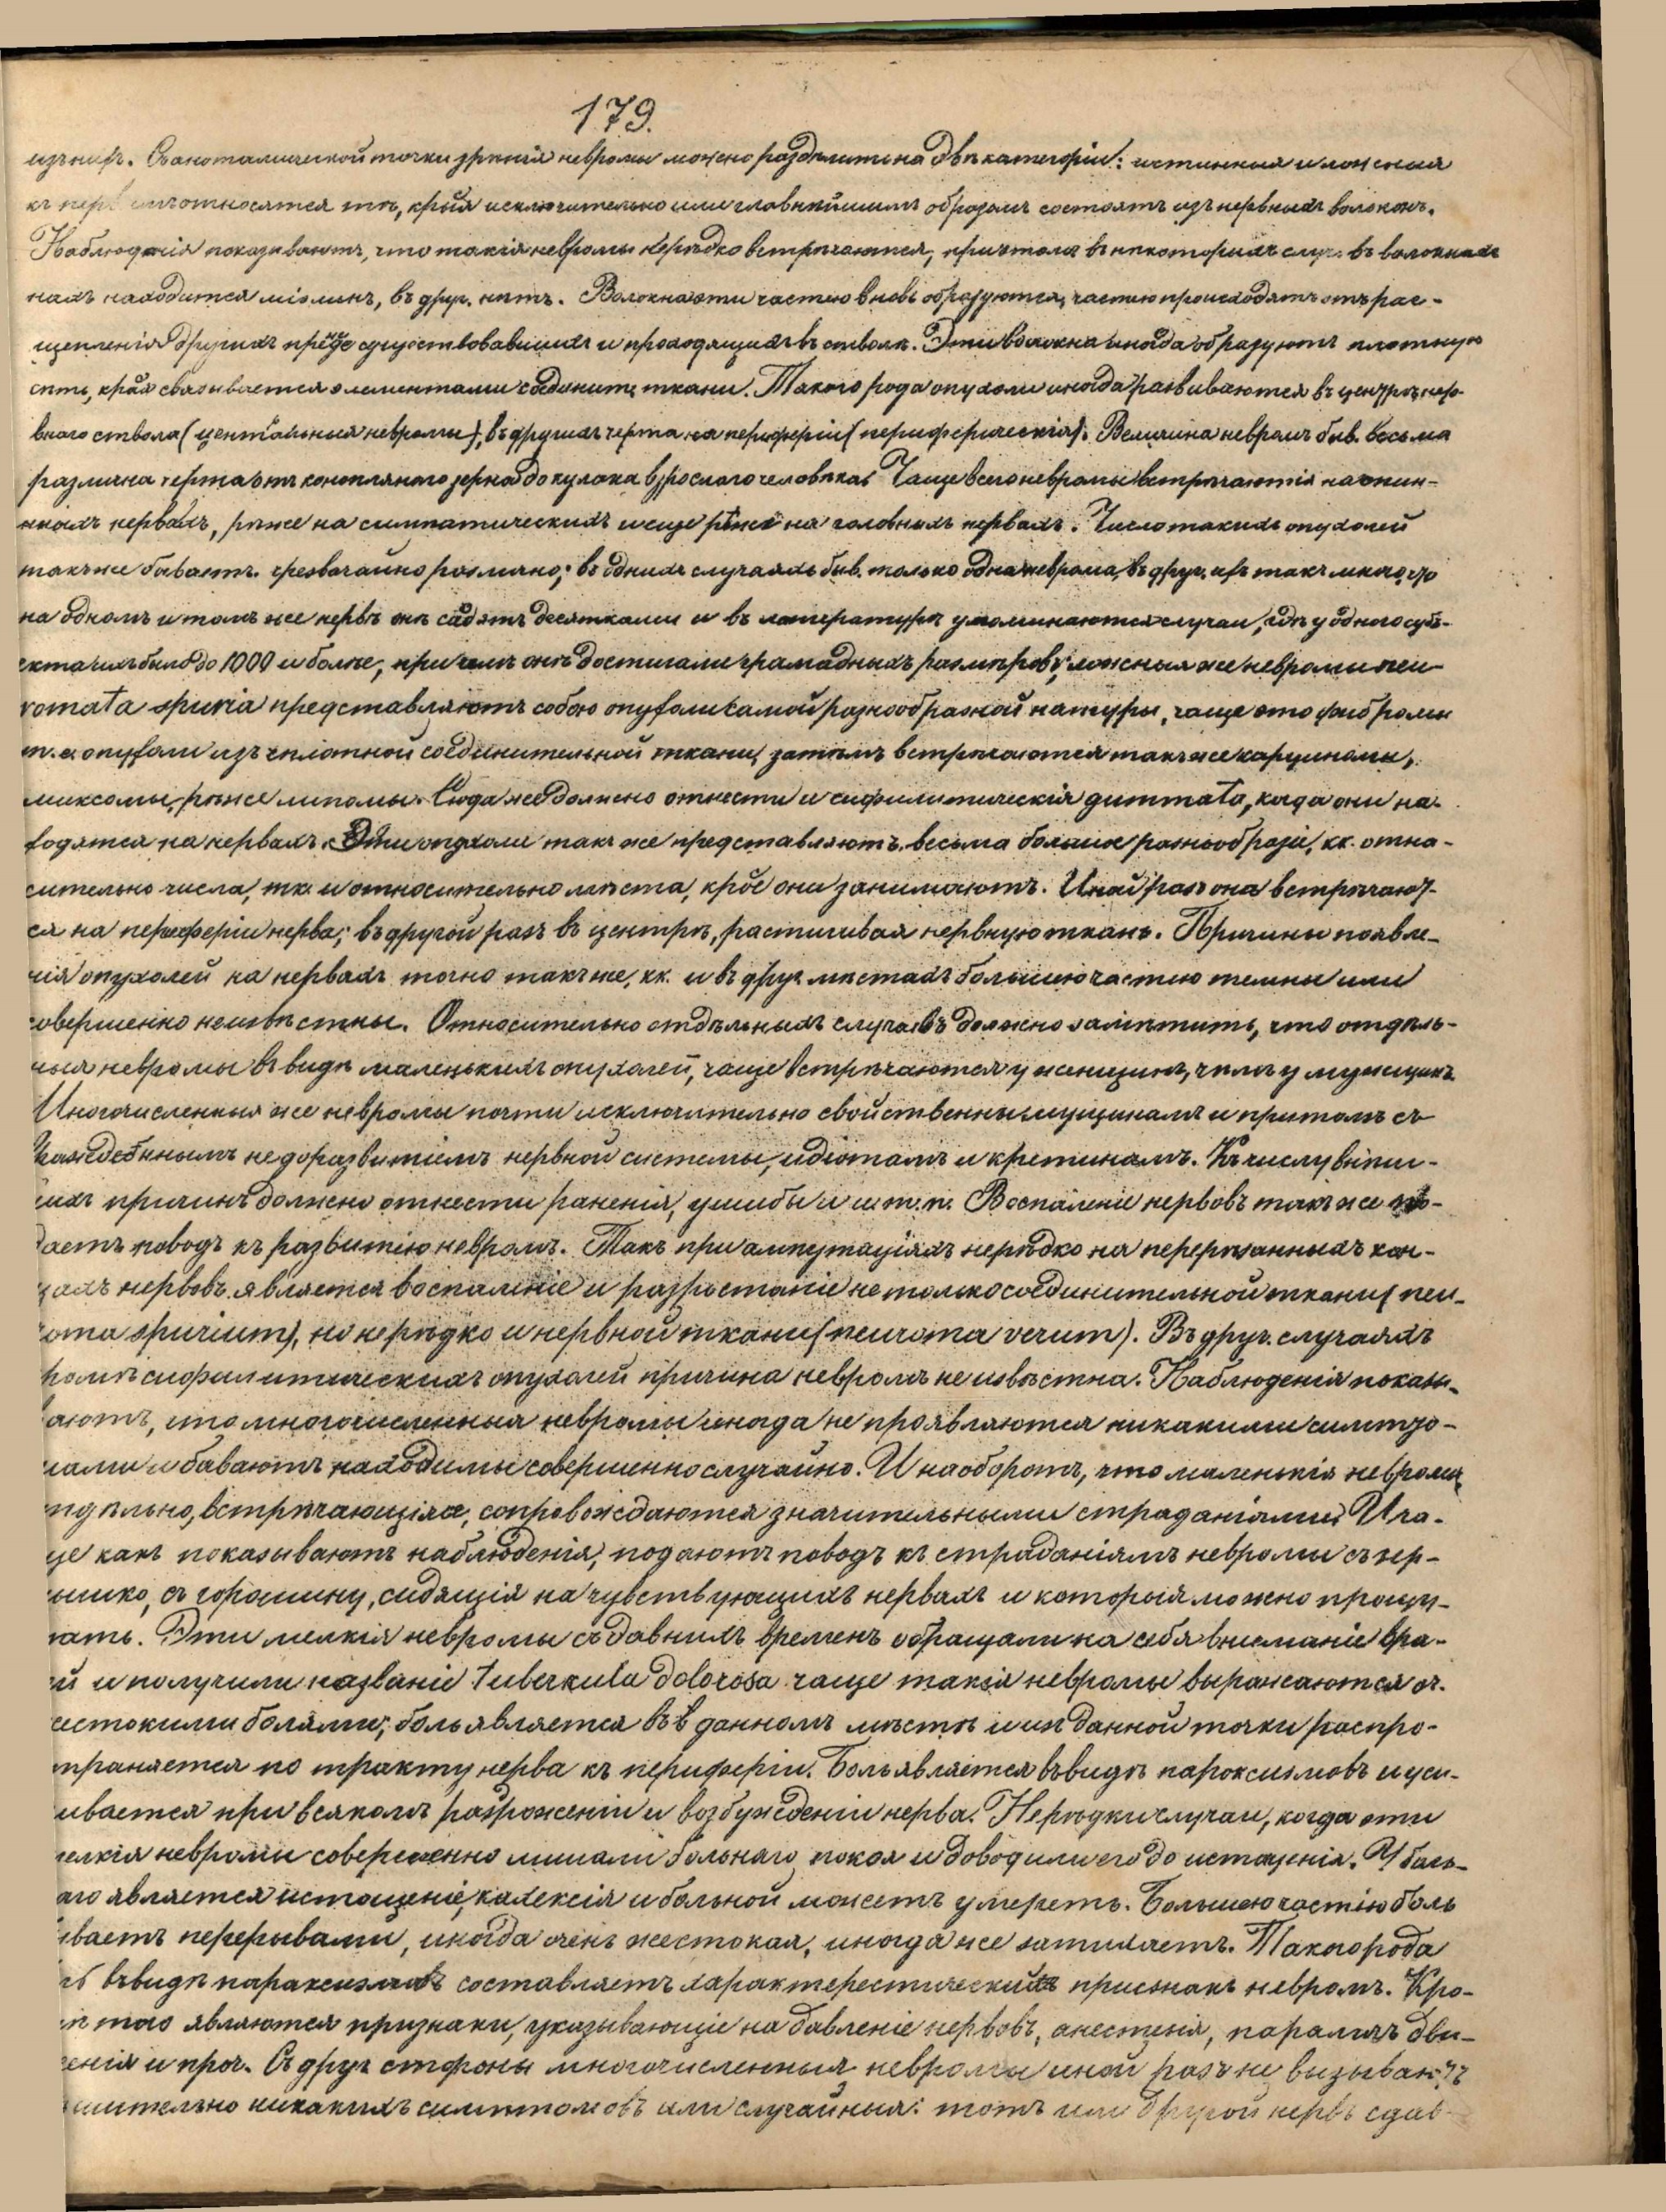 179.
изъ нихъ. Съ анатомической точки зрѣнія невромы можно раздѣлить на двѣ категоріи: истинныя и ложныя
къ перв имъ относятся тѣ, крыя исключительно или главнѣйшимъ образомъ состоятъ изъ нервныхъ волоконъ.
Наблюденія показываютъ, что такія невромы нерѣдко встрѣчаются, причемъ въ нѣкоторыхъ случ. въ волокнахъ
нахъ находится міэлинъ, въ друг. нѣтъ. Волокна эти частью вновь образуются, частью происходятъ отъ рас-
щепленія другихъ прежде существовавшихъ и проходящихъ въ стволѣ. Эти волокна иногда образуютъ плотную
сѣть, край связывается элементами соединит. ткани. Такого рода опухоли иногда развиваются въ центрѣ нер-
внаго ствола (центральныя невромы), въ другихъ на периферіи (периферическія). Величина невромъ быв. весьма
различна отъ коноплянаго зерна до кулака взрослаго человѣка. Чаще всего невромы встрѣчаются на спин-
ныхъ нервахъ, рѣже на симпатическихъ и еще рѣже на головныхъ нервахъ. Число такихъ опухолей
также бываетъ чрезвычайно различно; въ однихъ случаяхъ быв. только одна неврома, въ друг. ихъ такъ много, что
на одномъ и томъ же нервѣ онѣ сидятъ десятками и въ литературѣ упоминаются случаи, гдѣ у одного субъ-
екта ихъ было до 1000 и болѣе, при чемъ онѣ достигали громадныхъ размѣровъ; ложныя же невромы neu-
romata spuria представляютъ собою опухоли самой разнообразной натуры, чаще это фибромы
т. е. опухоли изъ плотной соединительной ткани, затѣмъ встрѣчаются также карциномы,
миксомы, рѣже липомы. Сюда же должно отнести и сифилитическія gummata, когда они на-
ходятся на нервахъ. Эти опухоли такъ же представляютъ весьма большое разнообразіе, кк. отно-
сительно числа, тк. и относительно мѣста, крое они занимаютъ. Иной разъ она встрѣчают-
ся на периферіи нерва; въ другой разъ въ центрѣ, растягивая нервную ткань. Причины появле-
нія опухолей на нервахъ точно такъ же, кк. и въ друг. мѣстахъ большею частію темны или
совершенно неизвѣстны. Относительно отдѣльныхъ случаевъ должно замѣтить, что отдѣль-
ныя невромы въ видѣ маленькихъ опухолей, чаще встрѣчаются у женщинъ, чѣмъ у мужщинъ
Многочисленныя же невромы почти исключительно свойственны мущинамъ и притомъ съ
недоразвитіемъ нервной системы, идіотамъ и кретинамъ. Къ числу внѣш-
нихъ причинъ должно отнести раненія, ушибы и и т. п. Воспаленіе нервовъ такъ же по-
даетъ поводъ къ развитію невромъ. Такъ при ампутаціяхъ нерѣдко на перерѣзанныхъ кон-
цахъ нервовъ является воспаленіе и разростаніе не только соединительной ткани (neu-
roma spurium), но нерѣдко и нервной ткани (neuroma verum). Въ друг. случаяхъ
кромѣ сифилитическихъ опухолей причина невромъ не извѣстна. Наблюденія показы-
ваютъ, что многочисленныя невромы иногда не проявляются никакими симпто-
мами и бываютъ находимы совершенно случайно. И наоборотъ, что маленькія невромы,
отдѣльно, встрѣчающіяся, сопровождаются значительными страданіями. И ча-
ще какъ показываютъ наблюденія, подаютъ поводъ къ страданіямъ невромы съ зер-
нышко, съ горошину, сидящія на чувствующихъ нервахъ и которыя можно прощу-
пать. Эти мелкія невромы съ давнихъ временъ обращали на себя вниманіе вра-
чей и получили названіе tuberkula dolorosa чаще такія невромы выражаются оч.
жестокими болями; боль является въ данномъ мѣстѣ и изъ данной точки распро-
страняется по тракту нерва къ периферіи. Боль является въ видѣ пароксизмовъ и уси-
ливается при всякомъ раздраженіи и возбужденіи нерва. Нерѣдки случаи, когда эти
мелкія невромы совершенно лишали больнаго покоя и доводили его до истощенія. У боль-
наго является истощеніе, кахексія и больной можетъ умереть. Большею частію боль
бываетъ перерывами, иногда очень жестокая, иногда же затихаетъ. Такого рода
боль въ видѣ параксизмовъ составляетъ характерестическій признакъ невромъ. Кро-
мѣ того являются признаки, указывающіе на давленіе нервовъ, анестезія, параличъ дви-
женія и проч. Съ друг. стороны многочисленныя невромы иной разъ не вызываютъ
рѣшительно никакихъ симптомовъ или случайныя: тотъ или другой нервъ сдав-